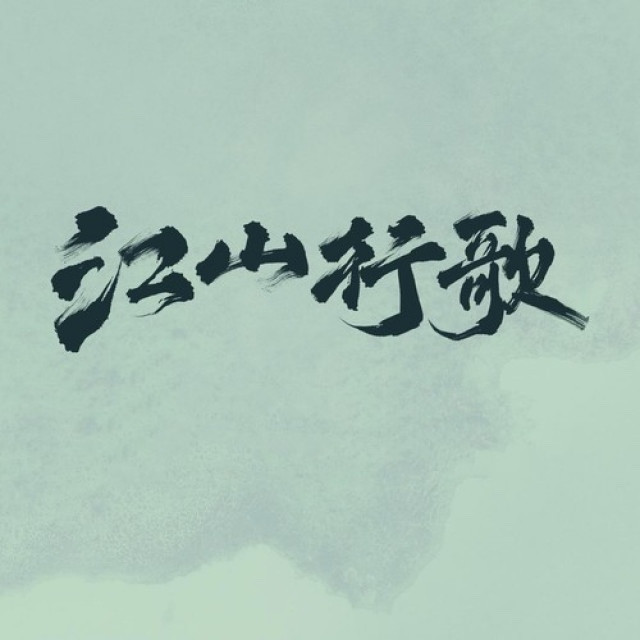 江山行歌